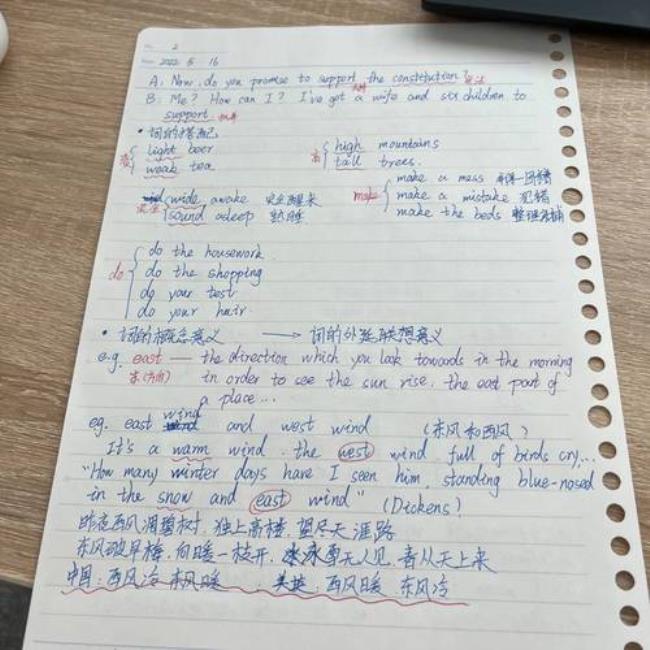 2
2022 5 16
A: Now, do you promise to support the constitution? 宪法
B: Me? How can I? I've got a wife and six children to
support.
• 词的搭配
淡 light beer
weak tea
高 high mountains
tall trees.
wide awake 完全醒来
sound asleep 熟睡
make
make a mess 弄得一团糟
make a mistake 犯错
make the beds 整理床铺
do
do the housework
do the shopping
do your test
do your hair.
• 词的概念意义 → 词的外延联想意义
e.g. east — the direction which you look towards in the morning
东(方向) in order to see the sun rise, the east part of
a place...
eg. east wind and west wind (东风和西风)
It's a warm wind, the west wind full of birds cry...
"How many winter days have I seen him, standing blue-nosed
in the snow and east wind" (Dickens)
昨夜西风凋碧树,独上高楼,望尽天涯路
东风破早梅,向暖一枝开,冰雪无人见,春从天上来
中国:西风冷 东风暖 英:西风暖 东风冷